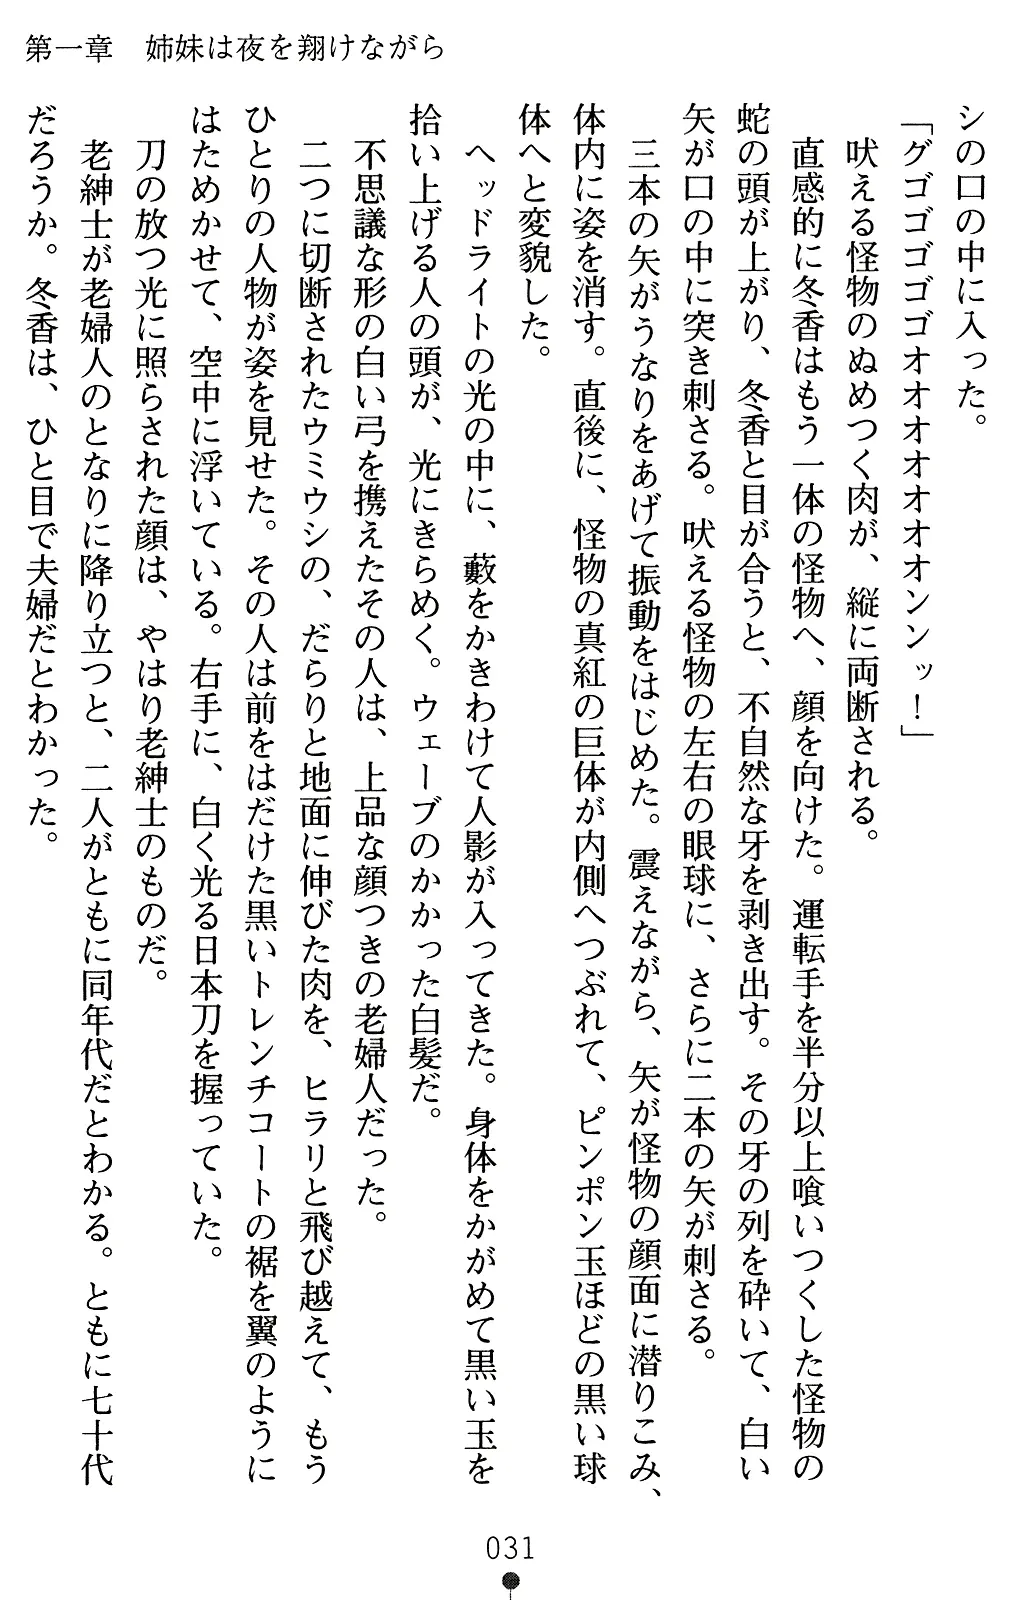 第一章　姉妹は夜を翔けながら
シの口の中に入った。
「グゴゴゴゴオオオオオオオンンッ！」
　吠える怪物のぬめつく肉が、縦に両断される。
　直感的に冬香はもう一体の怪物へ、顔を向けた。運転手を半分以上喰いつくした怪物の
蛇の頭が上がり、冬香と目が合うと、不自然な牙を剥き出す。その牙の列を砕いて、白い
矢が口の中に突き刺さる。吠える怪物の左右の眼球に、さらに二本の矢が刺さる。
　三本の矢がうなりをあげて振動をはじめた。震えながら、矢が怪物の顔面に潜りこみ、
体内に姿を消す。直後に、怪物の真紅の巨体が内側へつぶれて、ピンポン玉ほどの黒い球
体へと変貌した。
　ヘッドライトの光の中に、藪をかきわけて人影が入ってきた。身体をかがめて黒い玉を
拾い上げる人の頭が、光にきらめく。ウェーブのかかった白髪だ。
　不思議な形の白い弓を携えたその人は、上品な顔つきの老婦人だった。
　二つに切断されたウミウシの、だらりと地面に伸びた肉を、ヒラリと飛び越えて、もう
ひとりの人物が姿を見せた。その人は前をはだけた黒いトレンチコートの裾を翼のように
はためかせて、空中に浮いている。右手に、白く光る日本刀を握っていた。
　刀の放つ光に照らされた顔は、やはり老紳士のものだ。
　老紳士が老婦人のとなりに降り立つと、二人がともに同年代だとわかる。ともに七十代
だろうか。冬香は、ひと目で夫婦だとわかった。
031